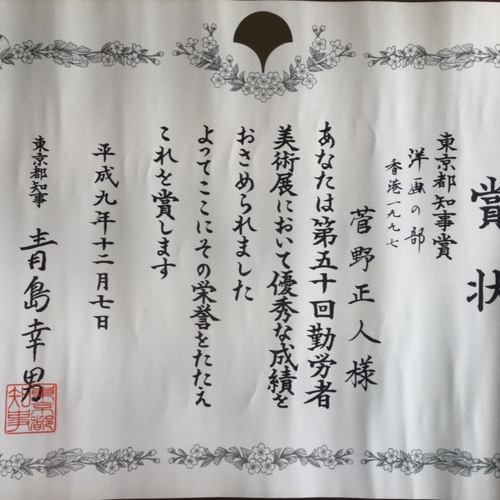 賞状
東京都知事賞
洋画の部
香港一九九七
菅野正人様
あなたは第五十回勤労者
美術展において優秀な成績を
おさめられました
よってここにその栄誉をたたえ
これを賞します
平成九年十二月七日
東京都知事 青島幸男
東京都知事